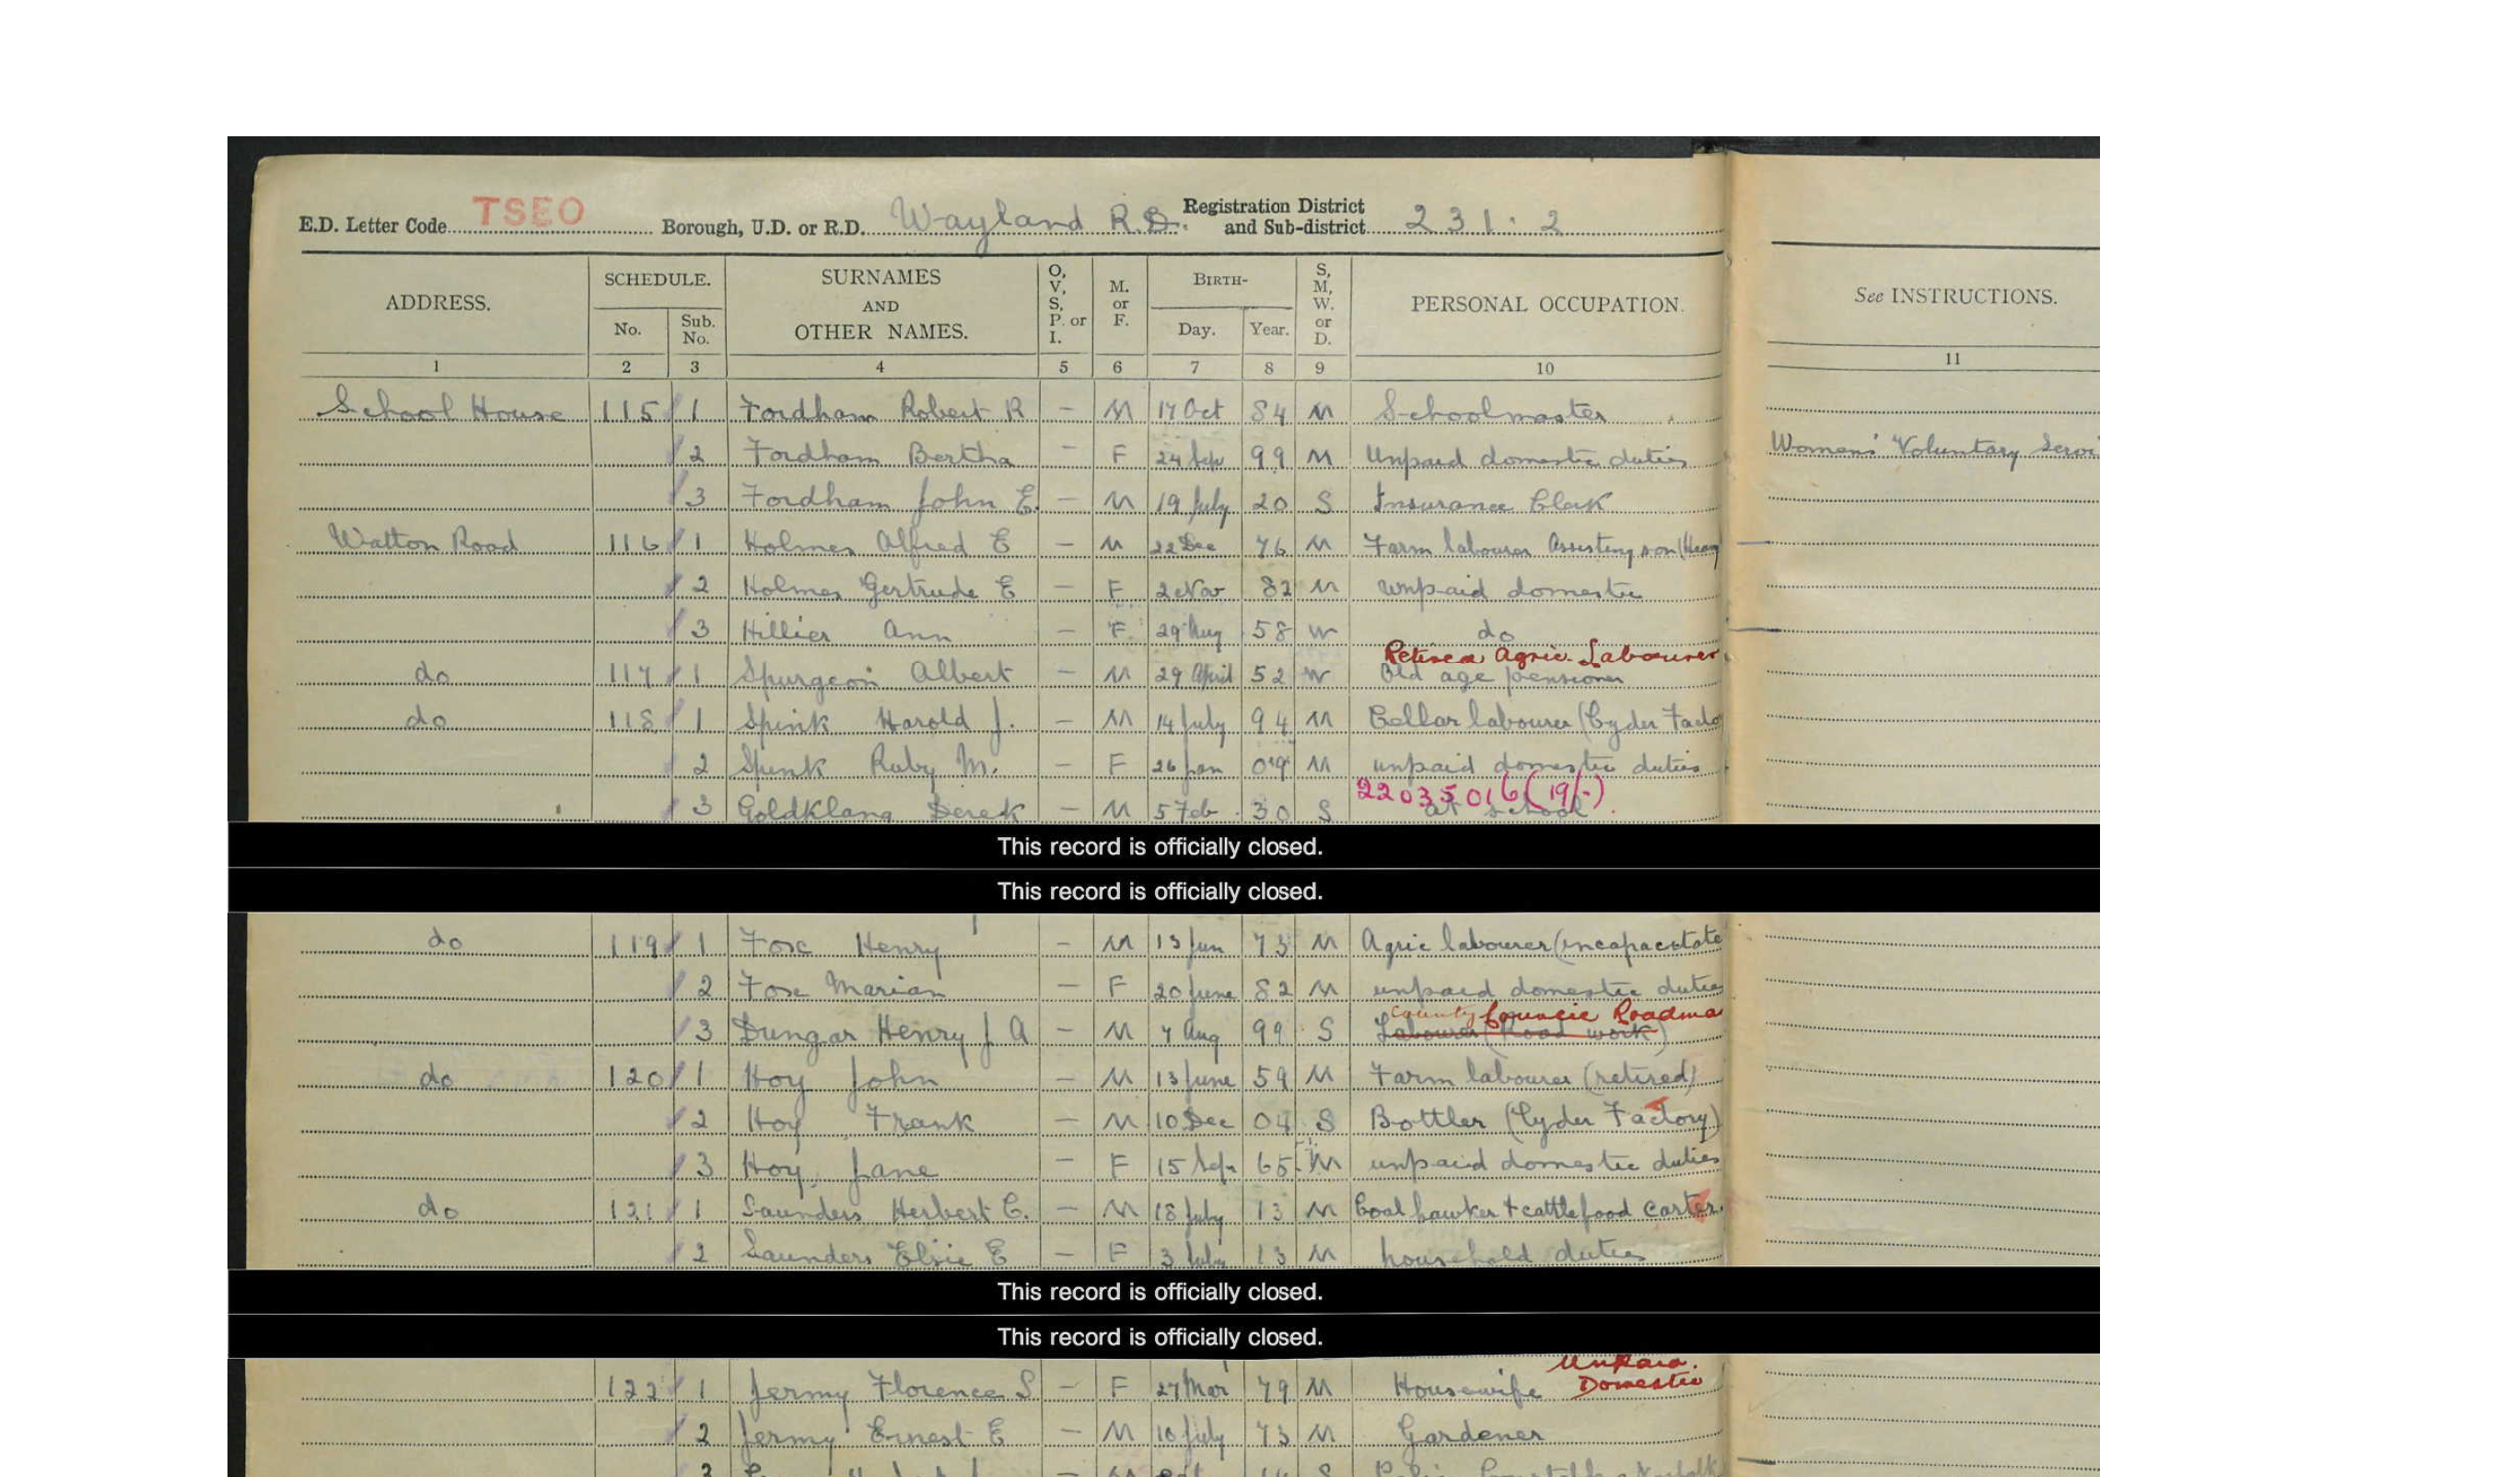 E.D. Letter Code TSEO Borough, U.D. or R.D. Wayland R.D. Registration District and Sub-district 231.2
ADDRESS. SCHEDULE. SURNAMES AND OTHER NAMES. O, V, S, P. or I. M. or F. BIRTH- S, M, W. or D. PERSONAL OCCUPATION. See INSTRUCTIONS.
No. Sub. No. Day. Year.
1 2 3 4 5 6 7 8 9 10 11
School House 115 1 Fordham Robert R – M 17 Oct 84 M Schoolmaster
2 Fordham Bertha – F 24 Sep 99 M Unpaid domestic duties Womens' Voluntary Servi
3 Fordham John E. – M 19 July 20 S Insurance Clerk
Watton Road 116 1 Holmes Alfred E – M 22 Dec 76 M Farm labourer Assisting son (Heavy
2 Holmes Gertrude E – F 2 Nov 82 M unpaid domestic
3 Hillier Ann – F 29 Aug 58 W do
Retired Agric. Labourer
do 117 1 Spurgeon Albert – M 29 April 52 W Old age pensioner
do 118 1 Spink Harold J. – M 14 July 94 M Cellar labourer (Cyder Facto
2 Spink Ruby M. – F 26 Jan 09 M unpaid domestic duties
22035016 (19/-)
3 Goldklang Derek – M 5 Feb 30 S at school
This record is officially closed.
This record is officially closed.
do 119 1 Fox Henry – M 13 Jun 73 M Agric labourer (incapacitate
2 Fox Marian – F 20 June 82 M unpaid domestic duties
County Council Roadma
3 Dungar Henry J A – M 7 Aug 99 S Labourer (Road work)
do 120 1 Hoy John – M 13 June 59 M Farm labourer (retired)
2 Hoy Frank – M 10 Dec 04 S Bottler (Cyder Factory)
3 Hoy Jane – F 15 Sep 65 M unpaid domestic duties
do 121 1 Saunders Herbert C. – M 18 July 13 M Coal hawker + cattlefood carter.
2 Saunders Elsie E – F 3 July 13 M household duties
This record is officially closed.
This record is officially closed.
Unpaid.
122 1 Jermy Florence S. – F 27 Mar 79 M Housewife Domestic
2 Jermy Ernest E – M 16 July 73 M Gardener
3